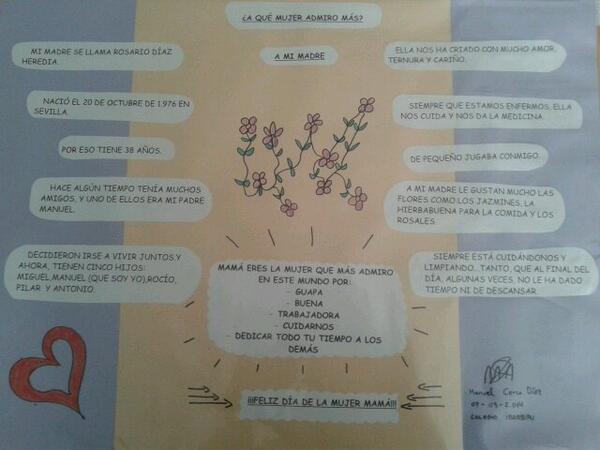 ¿A QUÉ MUJER ADMIRO MÁS?
A MI MADRE
MI MADRE SE LLAMA ROSARIO DÍAZ
HEREDIA.
NACIÓ EL 20 DE OCTUBRE DE 1.976 EN
SEVILLA.
POR ESO TIENE 38 AÑOS.
HACE ALGÚN TIEMPO TENÍA MUCHOS
AMIGOS, Y UNO DE ELLOS ERA MI PADRE
MANUEL.
DECIDIERON IRSE A VIVIR JUNTOS,Y
AHORA, TIENEN CINCO HIJOS:
MIGUEL,MANUEL (QUE SOY YO),ROCÍO,
PILAR Y ANTONIO.
ELLA NOS HA CRIADO CON MUCHO AMOR,
TERNURA Y CARIÑO.
SIEMPRE QUE ESTAMOS ENFERMOS, ELLA
NOS CUIDA Y NOS DA LA MEDICINA.
DE PEQUEÑO JUGABA CONMIGO.
A MI MADRE LE GUSTAN MUCHO LAS
FLORES COMO LOS JAZMINES, LA
HIERBABUENA PARA LA COMIDA Y LOS
ROSALES.
SIEMPRE ESTÁ CUIDÁNDONOS Y
LIMPIANDO...TANTO, QUE AL FINAL DEL
DÍA, ALGUNAS VECES, NO LE HA DADO
TIEMPO NI DE DESCANSAR.
MAMÁ ERES LA MUJER QUE MÁS ADMIRO
EN ESTE MUNDO POR:
- GUAPA
- BUENA
- TRABAJADORA
- CUIDARNOS
- DEDICAR TODO TU TIEMPO A LOS
DEMÁS
¡¡¡FELIZ DÍA DE LA MUJER MAMÁ!!!
Manuel Díaz
COLEGIO